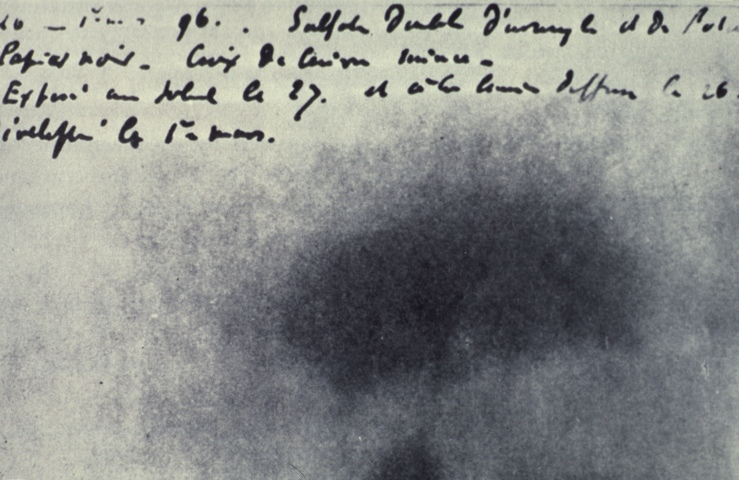 96. Sulfate Double d'uranyle et de Pot
Papier noir. Croix de Cuivre mince.
Exposé au soleil le 27. et à la lumière diffuse le 26.
développé le 1er mars.